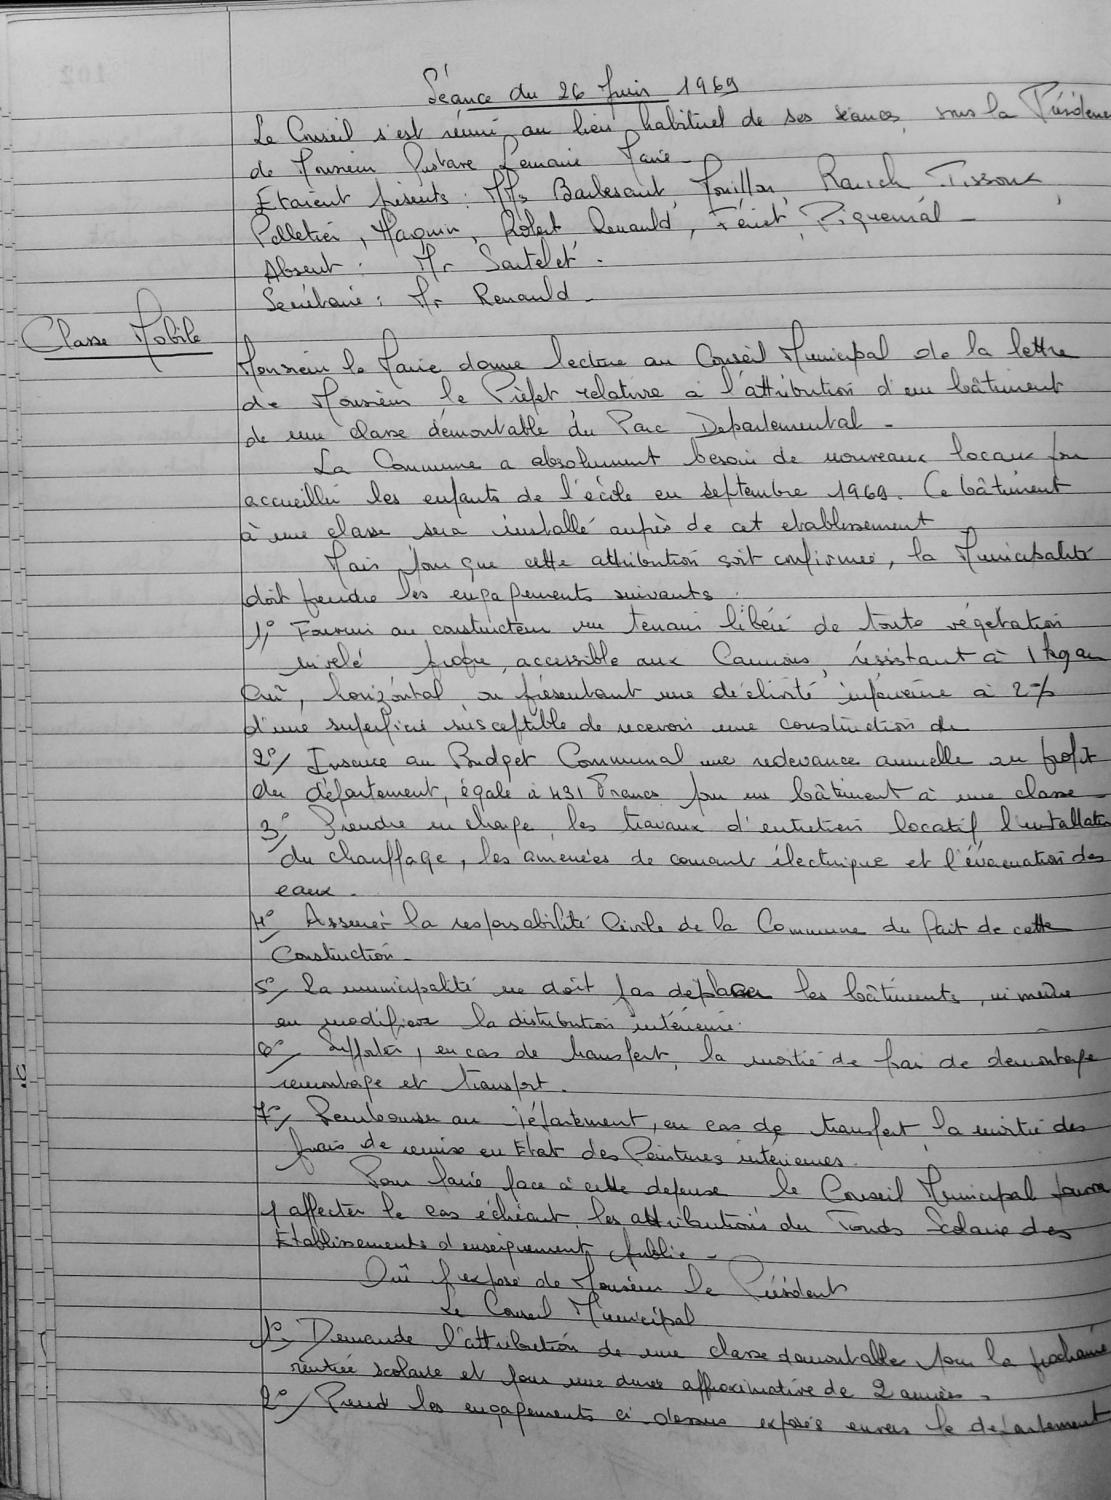 Séance du 26 Juin 1969
Le Conseil s'est réuni au lieu habituel de ses séances, sous la Présidence
de Monsieur Gustave Lemaire Maire -
Etaient présents : MMs Barbesant, Pouillon, Rauch Tissoux,
Pelletier, Maquin, Robert Renauld, Fériet, Piquemal -
Absent : Mr Sautelet.
Secrétaire : Mr Renauld -
Classe Mobile
Monsieur le Maire donne lecture au Conseil Municipal de la lettre
de Monsieur le Préfet relative à l'attribution d'un bâtiment
de une classe démontable du Parc Departemental -
La Commune a absolument besoin de nouveaux locaux pour
accueillir les enfants de l'école en septembre 1969. Ce bâtiment
à une classe sera installé auprès de cet etablissement
Mais pour que cette attribution soit confirmée, la Municipalité
doit prendre les engagements suivants :
1°/ Fournir au constructeur un terrain libéré de toute végétation
nivelé propre, accessible aux Camions, résistant à 1 kg au
cm², horizontal ou présentant une déclivité inférieure à 2%
d'une superficie susceptible de recevoir une construction de
2°/ Inscrire au Budget Communal une redevance annuelle au profit
du département, égale à 431 Francs pour un bâtiment à une classe -
3°/ Prendre en charge, les travaux d'entretien locatif l'installation
du chauffage, les amenées de courant électrique et l'évacuation des
eaux.
4°/ Assurer la responsabilité Civile de la Commune du fait de cette
Construction -
5°/ la municipalité ne doit pas déplacer les bâtiments, ni même
en modifier la distribution intérieure.
6°/ Supporter, en cas de transfert, la moitié de frais de demontage
remontage et transport.
7°/ Rembourser au Département, en cas de transfert, la moitié des
frais de remise en Etat des Peintures intérieures.
Pour faire face à cette dépense le Conseil Municipal pourra
y affecter le cas échéant, les attributions du Fonds Scolaire des
Etablissements d'enseignement public -
Ouï l'exposé de Monsieur le Président
Le Conseil Municipal
1°/ Demande l'attribution de une classe demontable pour la prochaine
rentrée scolaire et pour une durée approximative de 2 années.
2°/ Prend les engagements ci-dessus exposés envers le département